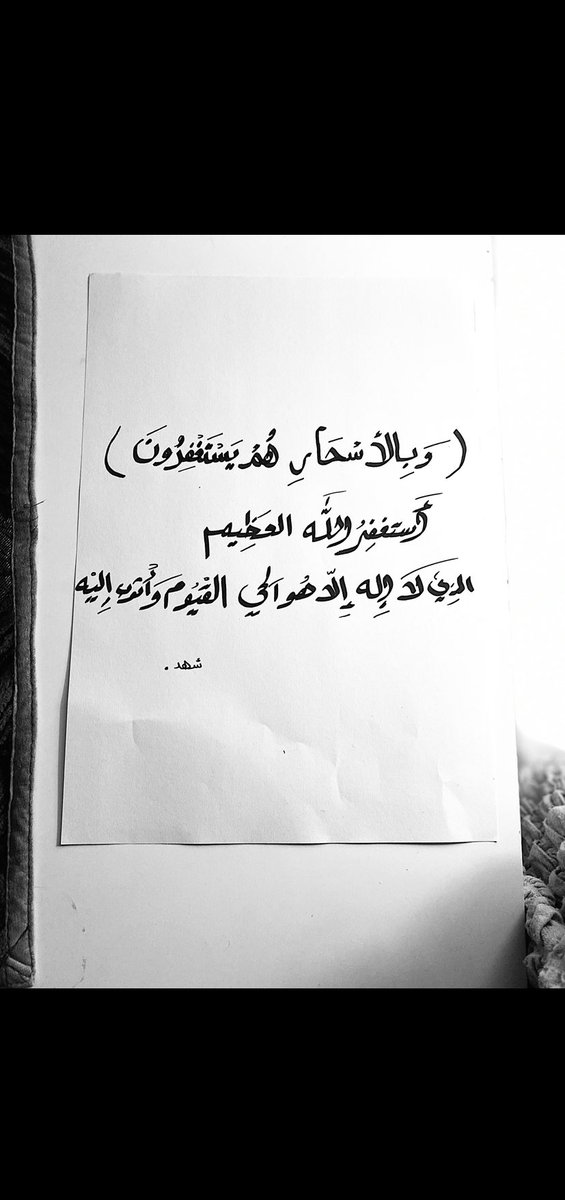 ( وَبِالأَسْحَارِ هُمْ يَسْتَغْفِرُونَ )
أَستغفِرُ اللَّه العَظِيم
الذِي لَا إِله إِلّا هُو الحي القَيُوم وَأَتُوب إِليْه
شهد .